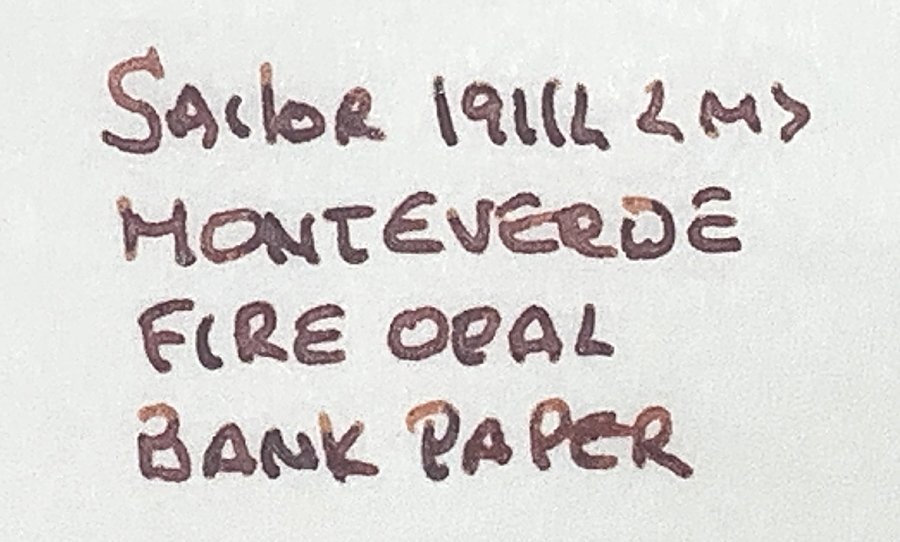 Sailor 1911L <M>
MONTEVERDE
FIRE OPAL
BANK PAPER